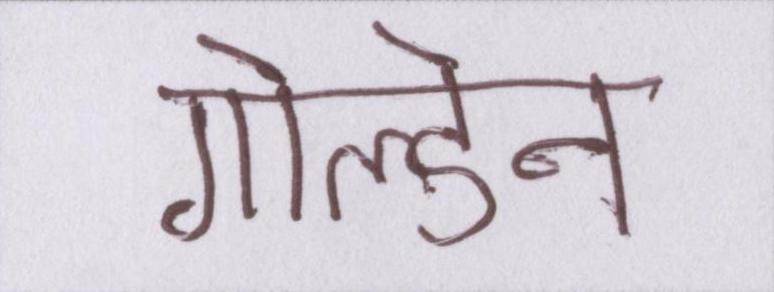 गोल्डेन